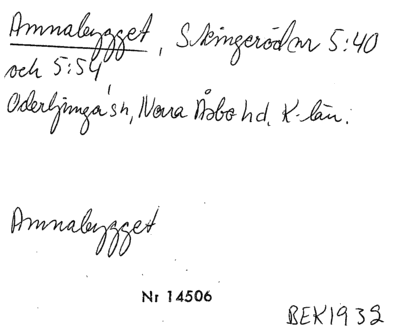 Annabygget, Skingeröd nr 5:40
och 5:54
Oderljunga sn, Norra Åsbo hd, K-län.
Annabygget
Nr 14506
BEK 1932